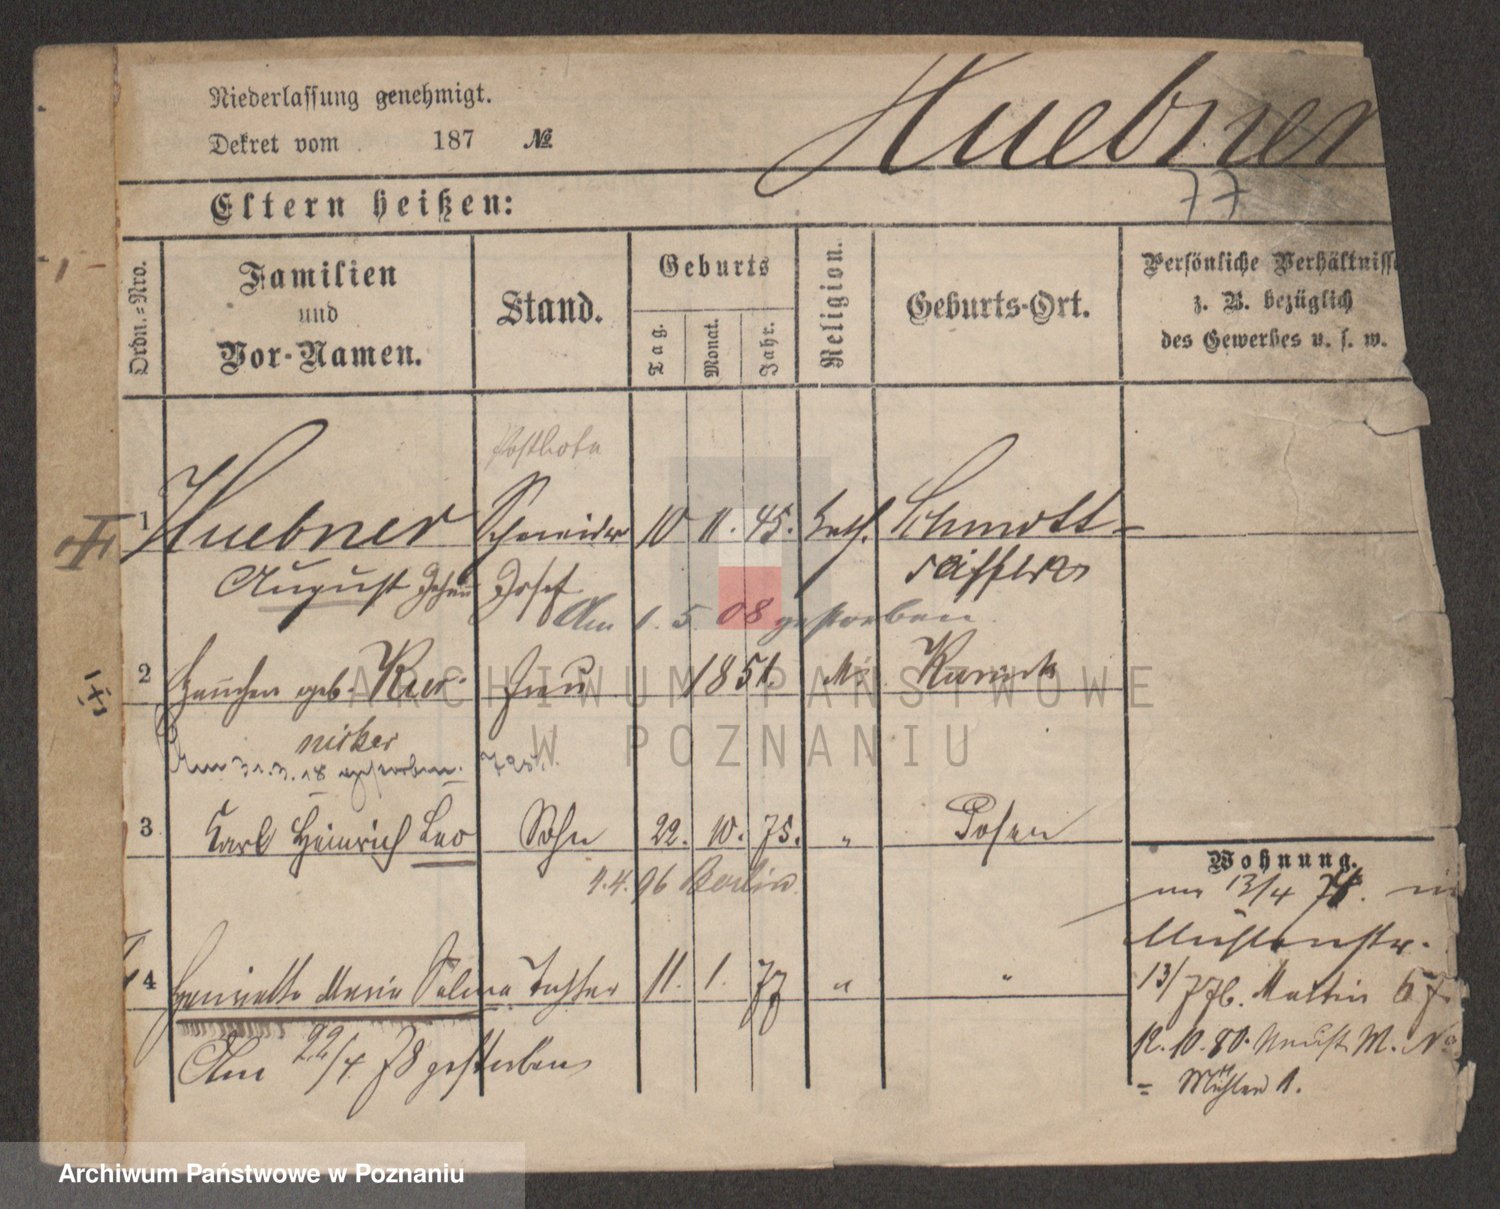 Niederlassung genehmigt.
Huebner
Dekret vom 187 №
77
Eltern heißen:
Ordn.-Nro.
Familien und Vor-Namen.
Stand.
Geburts
Tag.
Monat.
Jahr.
Religion.
Geburts-Ort.
Persönliche Verhältnisse
z. B. bezüglich
des Gewerbes u. s. w.
1
Postbote
1 Huebner Schneider 10 11. 45. kath. Schmott-
August Johann Josef seiffers
Am 1. 5. 08 gestorben
2 Hannchen geb. Kur- Frau 1851.
nicker
Am 31.3.18 gestorben.
3 Karl Heinrich Leo Sohn 22. 10. 75. " Posen
4.4.96 Berlin
Wohnung.
13/4 in
Mühlenstr.
4 Henriette Maria Selma Tochter 11. 1. 77 " "
13/7 76. Martin 67
Am 22/4. 78 gestorben
12.10.80. Neust. M.
= Mühlen 1.
ARCHIWUM PAŃSTWOWE
W POZNANIU
Archiwum Państwowe w Poznaniu